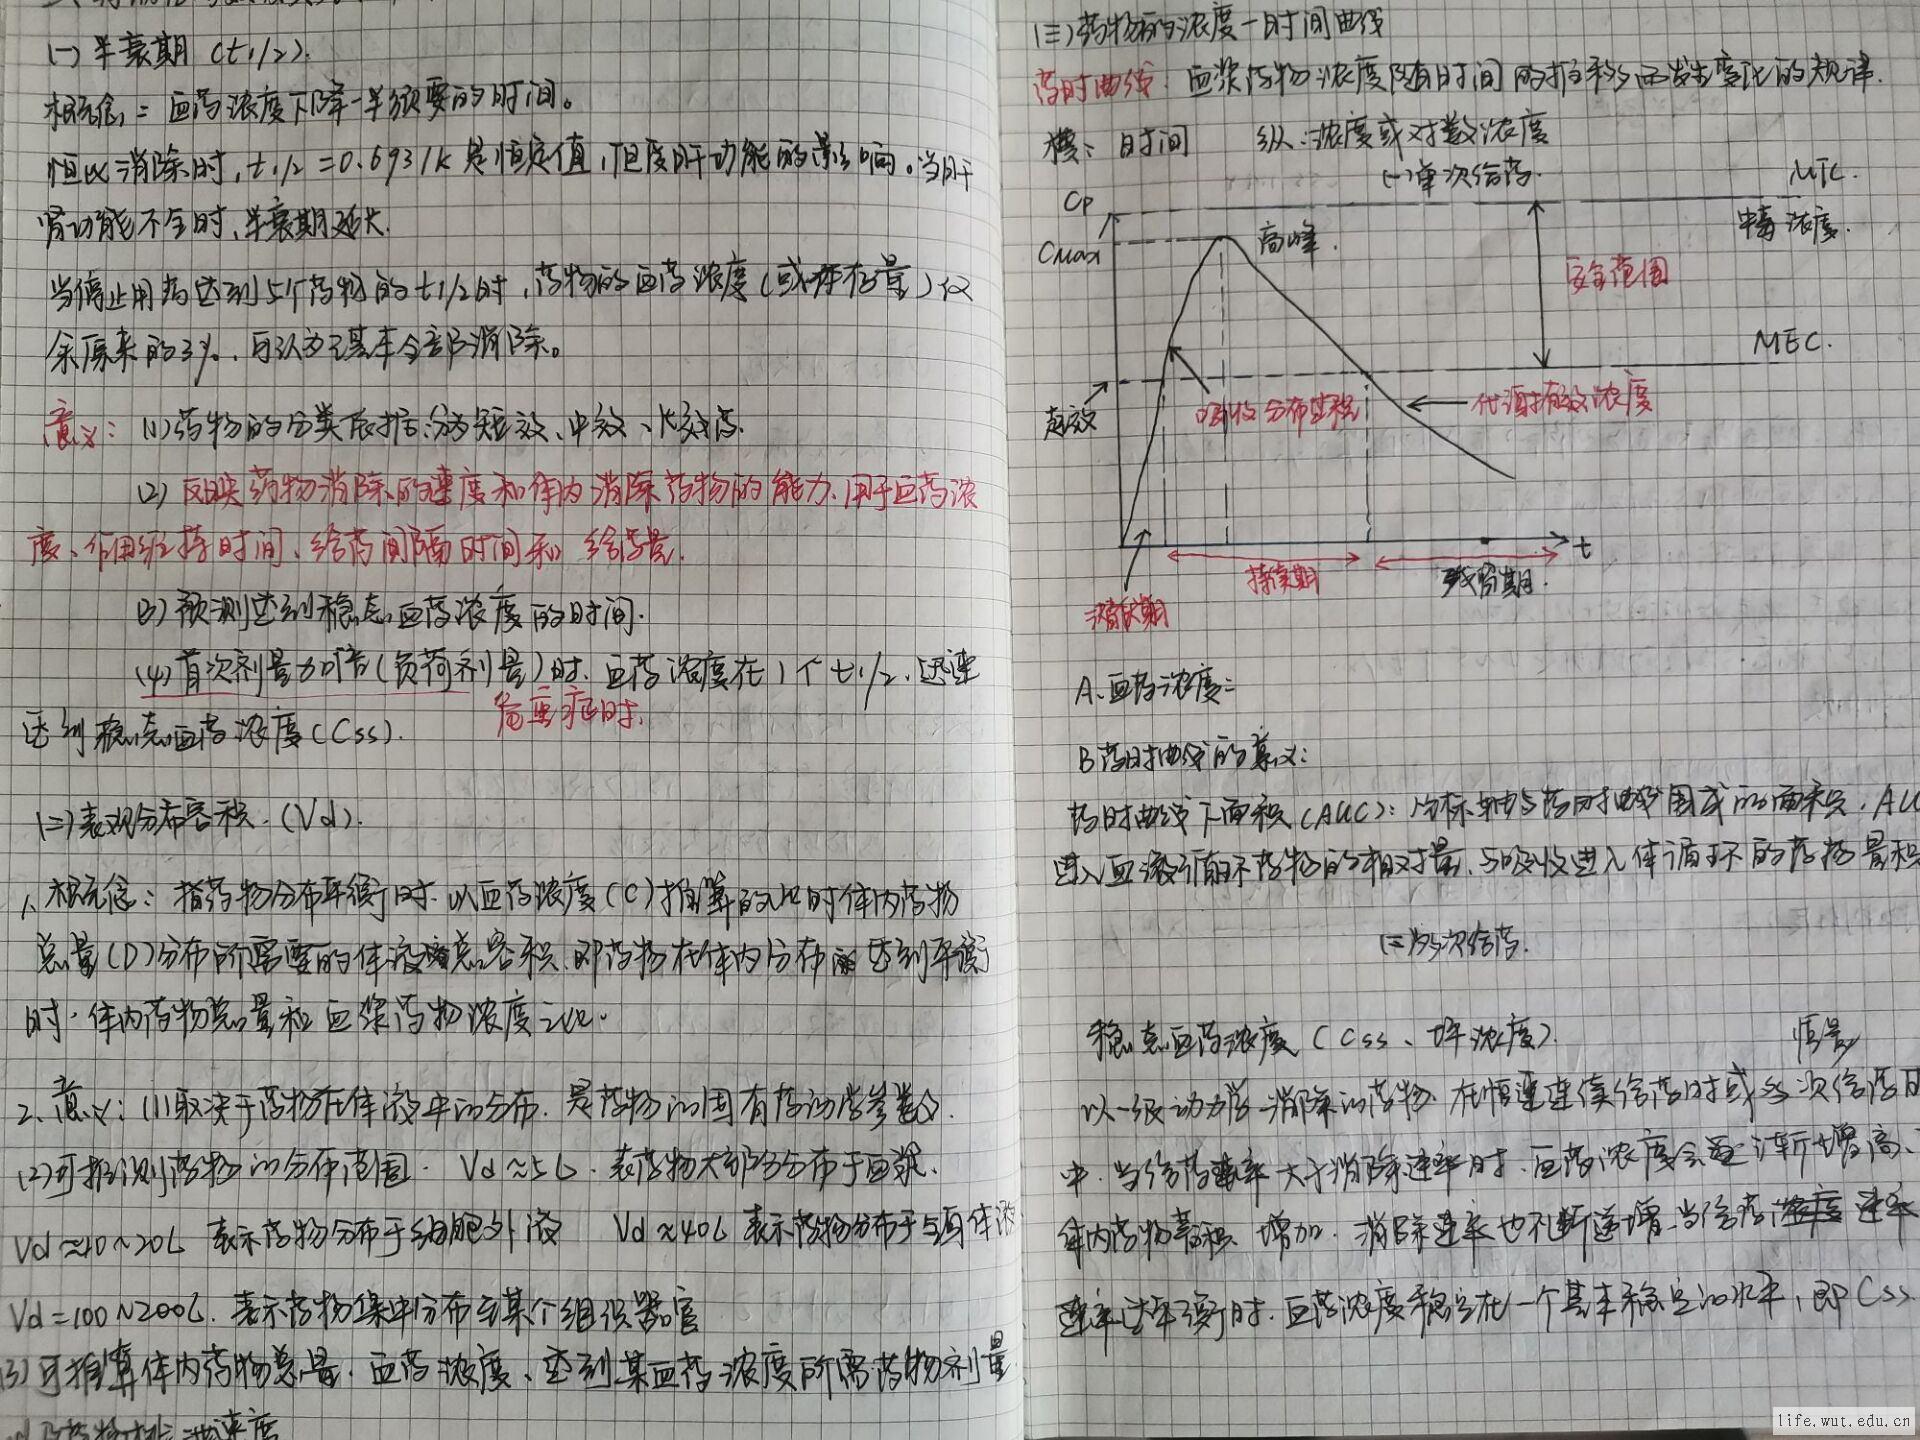 (一) 半衰期 (t1/2).
概念: 血药浓度下降一半所需要的时间。
恒比消除时, t1/2 = 0.693/k 是恒定值, 但受肝功能的影响。当肝
肾功能不全时, 半衰期延长.
当停止用药达到5个药物的t1/2时, 药物的血药浓度(或体存量)仅
余原来的3%, 可认为已基本全部消除。
意义: (1)药物的分类依据: 分为短效、中效、长效药.
(2) 反映药物消除的速度和体内消除药物的能力、用于血药浓
度、作用维持时间、给药间隔时间和 给药量.
(3) 预测达到稳态血药浓度的时间.
(4)首次剂量加倍(负荷剂量)时. 血药浓度在1个t1/2. 迅速
危重病时.
达到稳态血药浓度(Css).
(二)表观分布容积. (Vd).
1、概念: 指药物分布平衡时. 以血药浓度(C)推算的此时体内药物
总量(D)分布所需要的体液总容积. 即药物在体内分布达到平衡
时. 体内药物总量和血浆药物浓度之比.
2、意义: (1)取决于药物在体液中的分布. 是药物的固有药动学参数.
(2)可推测药物的分布范围. Vd≈5L. 表药物大部分分布于血浆.
Vd≈10~20L 表示药物分布于细胞外液 Vd≈40L 表示药物分布于全身体液
Vd=100~200L. 表示药物集中分布至某个组织器官
(3)可推算体内药物总量. 血药浓度、达到某血药浓度所需药物剂量
速度
(三)药物的浓度—时间曲线
药时曲线: 血浆药物浓度随时间的推移而发生变化的规律.
横: 时间 纵: 浓度或对数浓度
(一)单次给药.
MTC.
Cp
中毒浓度.
Cmax
高峰.
安全范围
MEC.
起效
吸收分布过程
代谢排泄
浓度
t
持续期
残留期.
潜伏期
A. 血药浓度:
B药时曲线的意义:
药时曲线下面积(AUC): 坐标轴与药时曲线围成的面积. AU
进入血液循环药物的相对量. 与吸收进入体循环的药物量积
(二)多次给药.
稳态血药浓度 (Css、坪浓度).
恒量
以一级动力学消除的药物 在恒速连续给药时或多次给药
中. 当给药速率大于消除速率时. 血药浓度会逐渐增高、
体内药物蓄积 增加. 消除速率也不断递增. 当给药速率
速率达平衡时. 血药浓度稳定在一个基本稳定的水平, 即Css.
life.wut.edu.cn